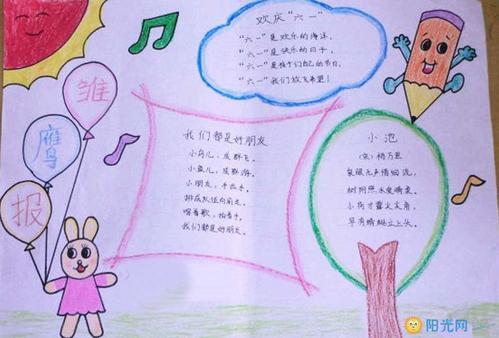 欢庆“六一”
“六一”是欢乐的海洋，
“六一”是快乐的日子，
“六一”是孩子们自己的节日，
“六一”我们放飞希望！
雏
鹰
报
我们都是好朋友
小鸟儿，成群飞，
小鱼儿，成群游，
小朋友，手拉手，
排成队伍向前走。
唱着歌，拍着手，
我们都是好朋友。
小池
（宋）杨万里
泉眼无声惜细流，
树阴照水爱晴柔。
小荷才露尖尖角，
早有蜻蜓立上头。
阳光网